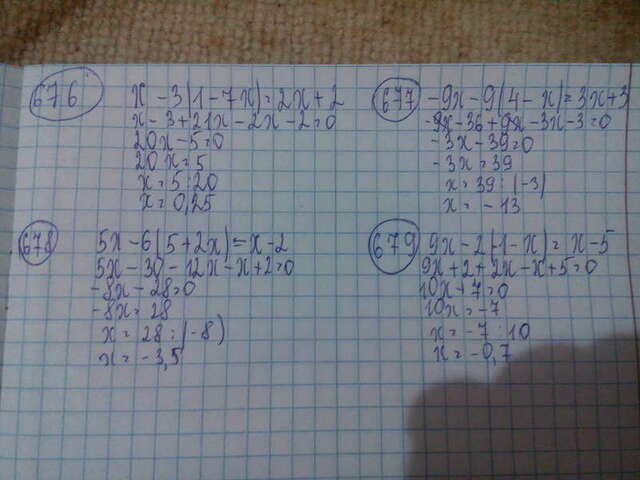 676
x - 3(1 - 7x) = 2x + 2
x - 3 + 21x - 2x - 2 = 0
20x - 5 = 0
20x = 5
x = 5 : 20
x = 0,25
677
-9x - 9(4 - x) = 3x + 3
-9x - 36 + 9x - 3x - 3 = 0
-3x - 39 = 0
-3x = 39
x = 39 : (-3)
x = -13
678
5x - 6(5 + 2x) = x - 2
5x - 30 - 12x - x + 2 = 0
-8x - 28 = 0
-8x = 28
x = 28 : (-8)
x = -3,5
679
9x - 2(-1 - x) = x - 5
9x + 2 + 2x - x + 5 = 0
10x + 7 = 0
10x = -7
x = -7 : 10
x = -0,7